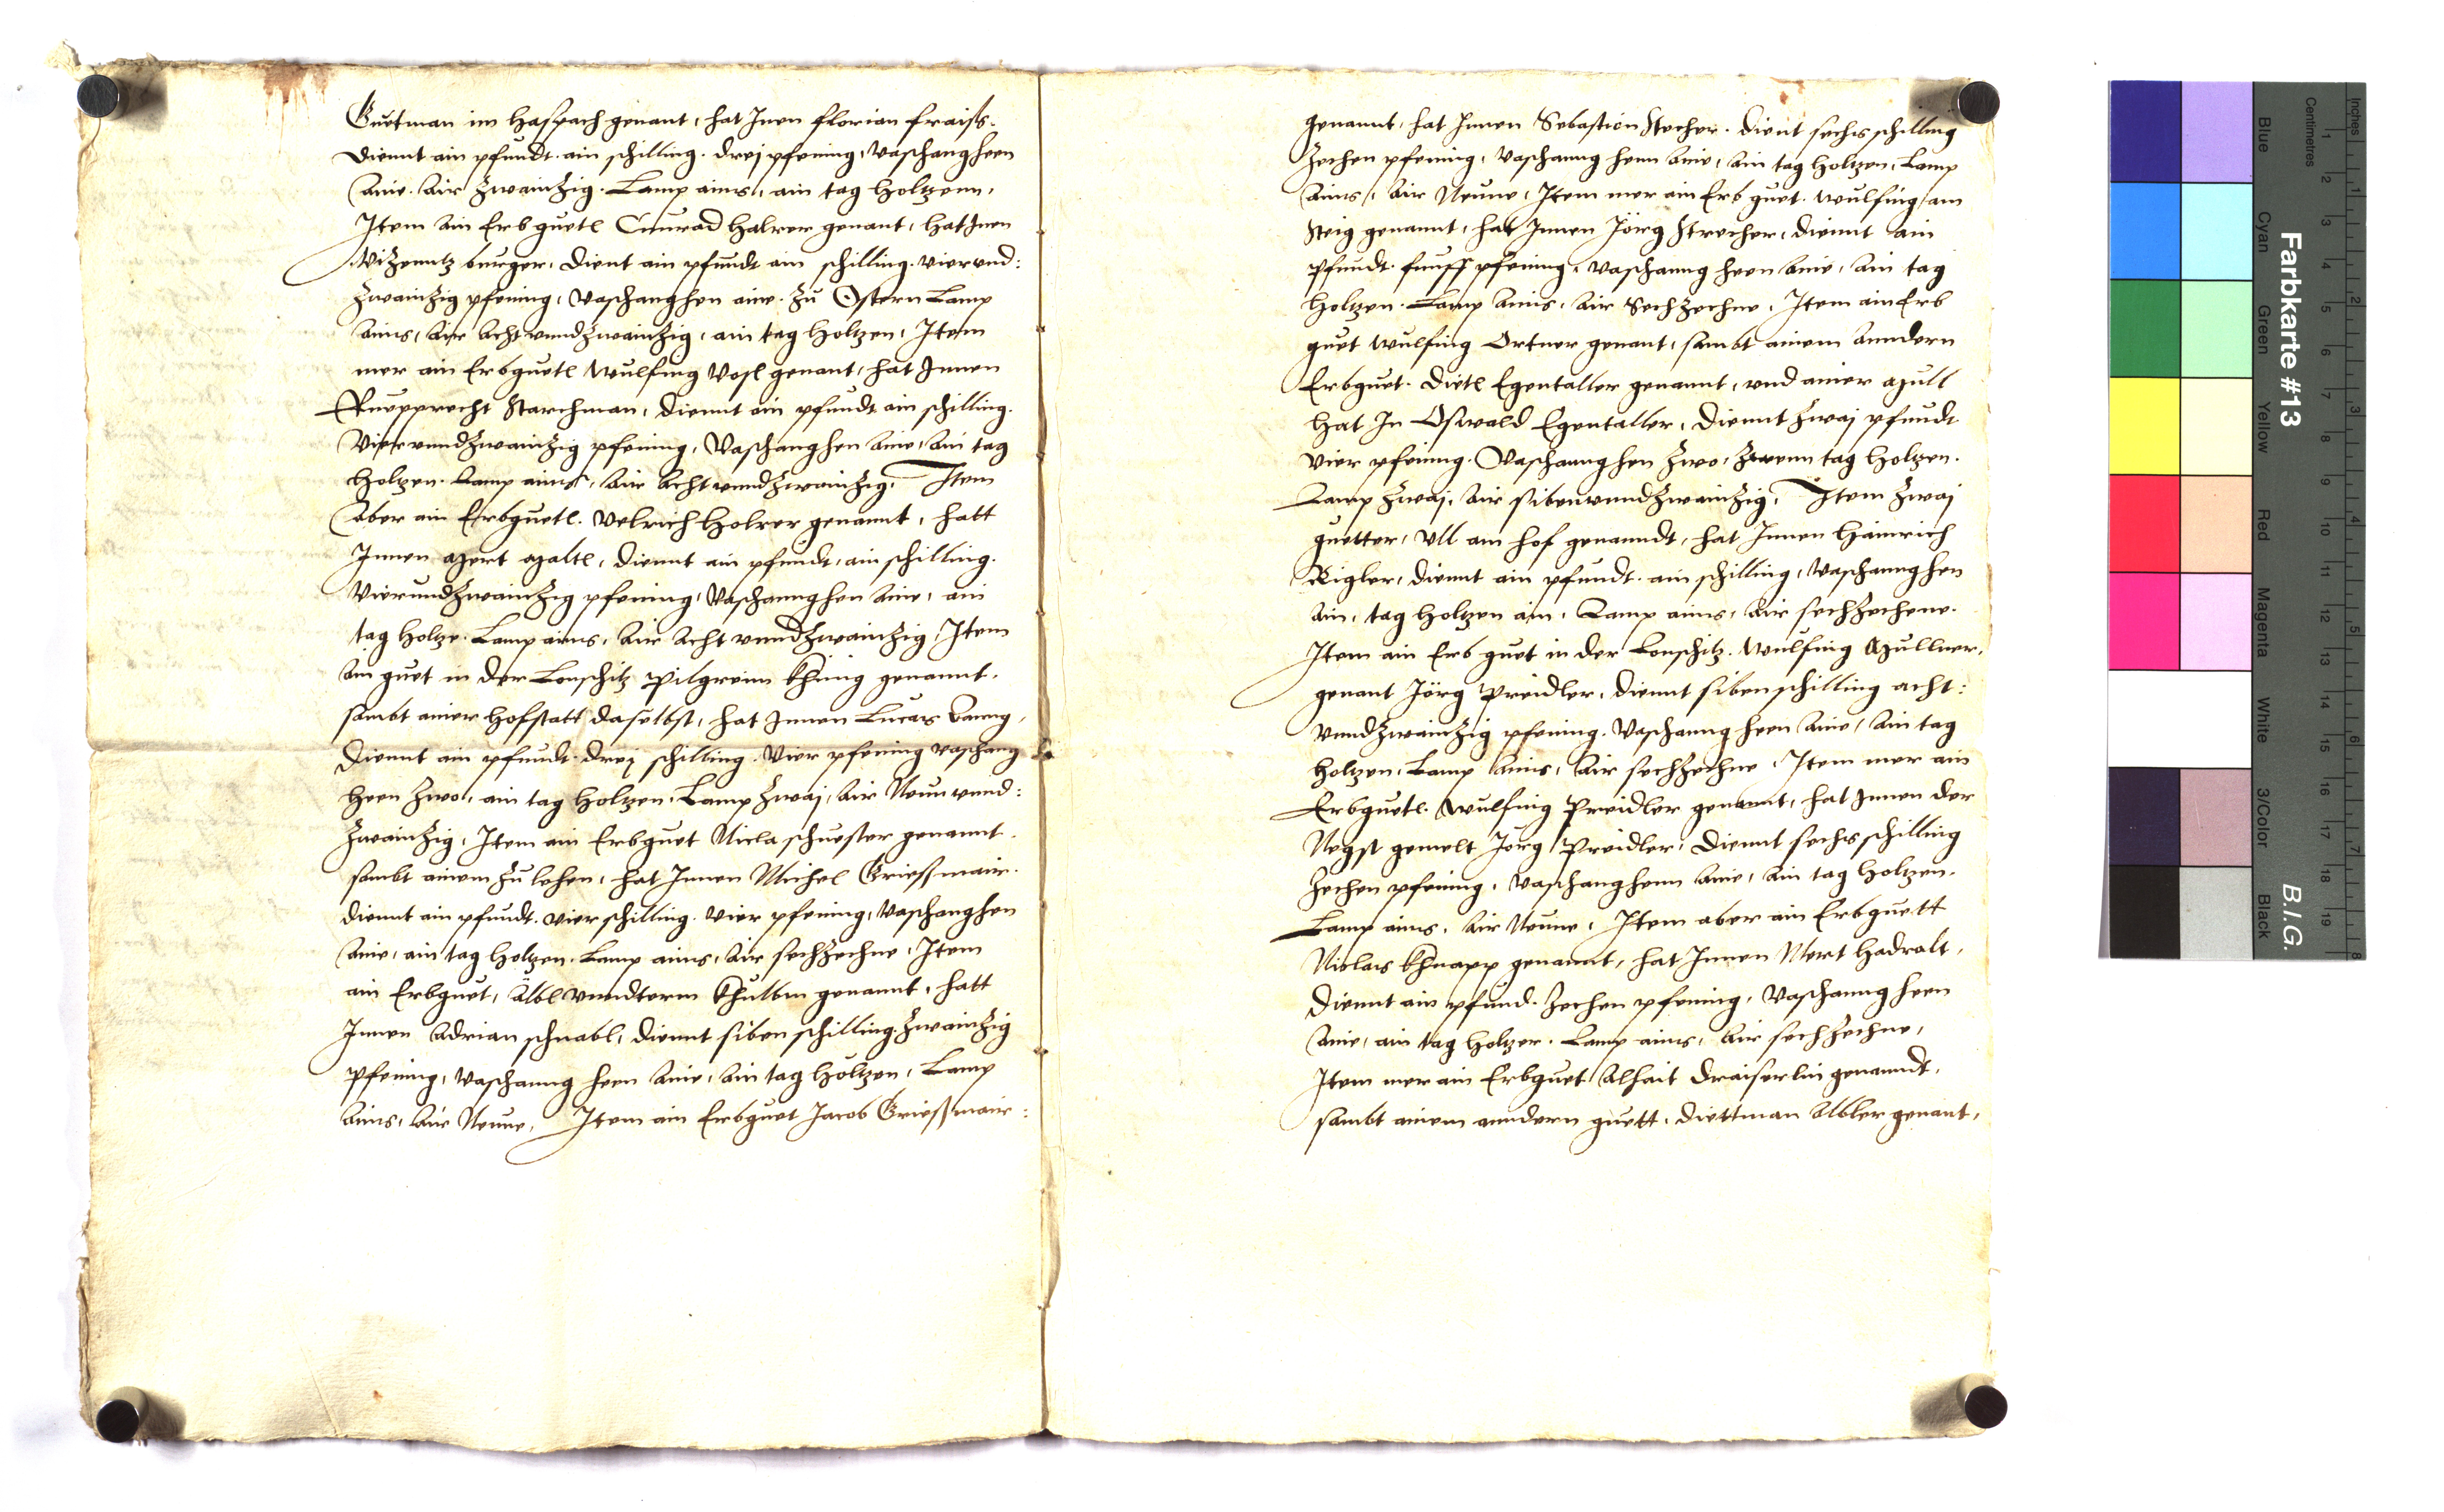 Guetman im Haslpach genant, hat Inen florian fraiss.
Diennt ain pfundt. ain schilling. drej pfening, Vaschanghenn
Aine. Air zwainzig. Lamp ains, ain tag Holtzenn,
Item ain Erbguetl Cunrad Halrer genant, hat Inen
Vizenntz burger, dient ain pfundt ain schilling. vierund:
zwainzig pfening, Vaschanghen aine. zu Ostern Lamp
ains, Air Acht unndzwainzig, ain tag Holtzen, Item
mer ain Erbguetl Wulfing Vosl genant, hat Innen
Ruepprecht Starchman, diennt ain pfundt ain schilling.
Vierunndzwainzig pfening, Vaschanghen Aine, Ain tag
Holtzen. Lamp ains, Air Acht unndzwainzig, Item
Aber ain Erbguetl. Velrich Holrer genannt, hatt
Innen Mert Maltl, diennt ain pfundt, ain schilling.
Vierundzwainzig pfening, Vaschannghen Aine, ain
tag Holtze. Lamp ains, Air Acht unndzwainzig, Item
Ain guet in der Lonschitz Pilgreim Khünig genannt.
sambt ainer Hofstatt daselbst, hat Innen Lucas
Diennt ain pfundt. drej schilling. Vier pfening Vaschang
Henn zwo, ain tag Holtzen, Lamp zwaj, Air Neun unnd:
zwainzig, Item ain Erbguet Nicla schuester genannt.
sambt ainem zu lehen, hat Innen Michel Griessmair.
diennt ain pfundt. vier schilling. vier pfening, Vaschanghen
Aine, ain tag Holtzen. Lamp ains, Air sechzechne, Item
ain Erbguet, Albl unndterm Khulbm genannt, hatt
Innen Adrian schnabl, diennt siben schilling. zwainzig
Pfening, Vaschanng henn Aine, Ain tag Holtzen, Lamp
Ains, Air Neune, Item ain Erbguet Jacob Griessmair:
genannt, hat Innen Sebastion Stecher. dient sechs schilling
zechen pfening, Vaschanng henn Aine, Ain tag Holtzen, Lamp
Ains, Air Neune, Item mer ain Erb guet. Wulfing am
Steig genannt, hat Innen Jörg Strecher, diennt Ain
Pfundt. funff pfening, Vaschanng henn Aine, Ain tag
Holtzen. Lamp Ains, Air Sechzechne, Item ain Erb
guet Wulfing Ortner genant, sambt ainem Anndern
Erbguet. Dietl Egentaller genannt, und ainer Mull
Hat In Oswald Egentaller, diennt zwaj pfundt
Vier pfening. Vaschannghen zwo, zwenn tag Holtzen.
Lamp zwaj, Air sibenunndzwainzig, Item zwaj
guetter, Ull am Hof genanndt, hat Innen Hainrich
Rigler, diennt ain pfundt. ain schilling, Vaschannghen
Ain, tag Holtzen ain, Lamp ains, Air sechzechene.
Item ain Erb guet in der Lonschitz. Wulfing Mullner,
genant Jörg Preidler, diennt siben schilling acht:
unndzwainzig pfening. Vaschanng henn Aine, Ain tag
Holtzen, Lamp Ains, Air sechzechne, Item mer ain
Erbguetl. Wulfing Preidler genannt, hat Innen der
Negst gemelt Jörg Preidler, diennt sechs schilling
zechen pfening, Vaschanghenn Aine, Ain tag Holtzen.
Lamp ains, Air Neune, Item aber ain Erbguett
Niclas Khnapp genannt, hat Innen Mert Hadralt,
diennt ain pfund. zechen pfening, Vaschanng henn
Aine, ain tag Holtzer. Lamp ains, Air sechzechne,
Item mer ain Erbguet Alhait Draiserlin genanndt,
sambt ainem anndern guett, diettman Albler genant,
Farbkarte #13
B.I.G.
Inches
Centimetres
Blue
Cyan
Green
Yellow
Red
Magenta
White
3/Color
Black